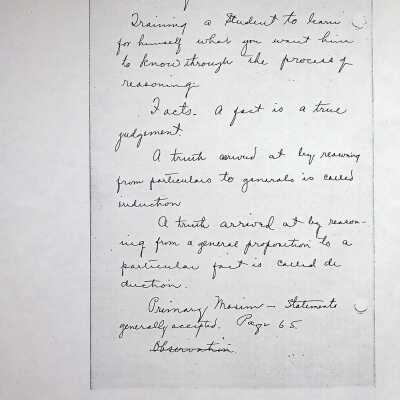 Training a student to learn
for himself what you want him
to know through the process of
reasoning.
Facts - A fact is a true
judgement.
A truth arrived at by reasoning
from particulars to generals is called
induction
A truth arrived at by reason-
ing from a general proposition to a
particular fact is called de
duction.
Primary Maxim - Statements
generally accepted. Page 65
Observation